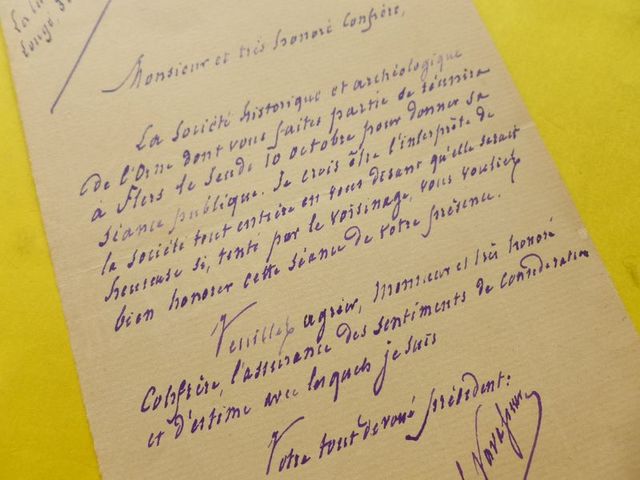 Monsieur et très honoré Confrère,
La Société historique et archéologique
de l'Orne dont vous faites partie se réunira
à Flers le Jeudi 10 octobre pour donner sa
séance publique. Je crois être l'interprète de
la Société tout entière en vous disant qu'elle serait
heureuse si, tenté par le voisinage, vous vouliez
bien honorer cette séance de votre présence.
Veuillez agréer, Monsieur et très honoré
Confrère, l'assurance des sentiments de considération
et d'estime avec lesquels je suis
Votre tout dévoué président: